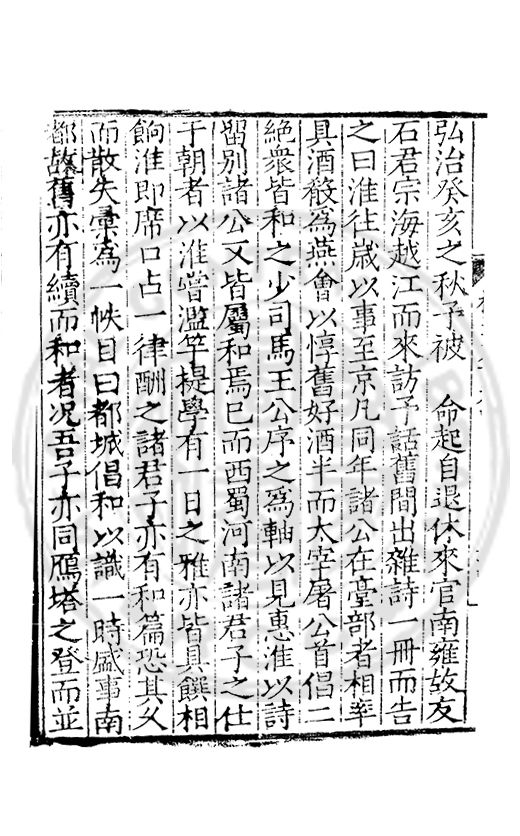 弘治癸亥之秋予被　命起自退休來官南雍故友
石君宗海越江而來訪予話舊間出雜詩一冊而告
之曰淮往歲以事至京凡同年諸公在臺部者相率
具酒殽為燕會以惇舊好酒半而太宰屠公首倡二
絶衆皆和之少司馬王公序之為軸以見惠淮以詩
留別諸公又皆屬和焉已而西蜀河南諸君子之仕
于朝者以淮嘗濫竽提學有一日之雅亦皆具饌相
餉淮即席口占一律酬之諸君子亦有和篇恐其久
而散失彙為一帙目曰都城倡和以識一時盛事南
都故舊亦有續而和者况吾子亦同鴈塔之登而並